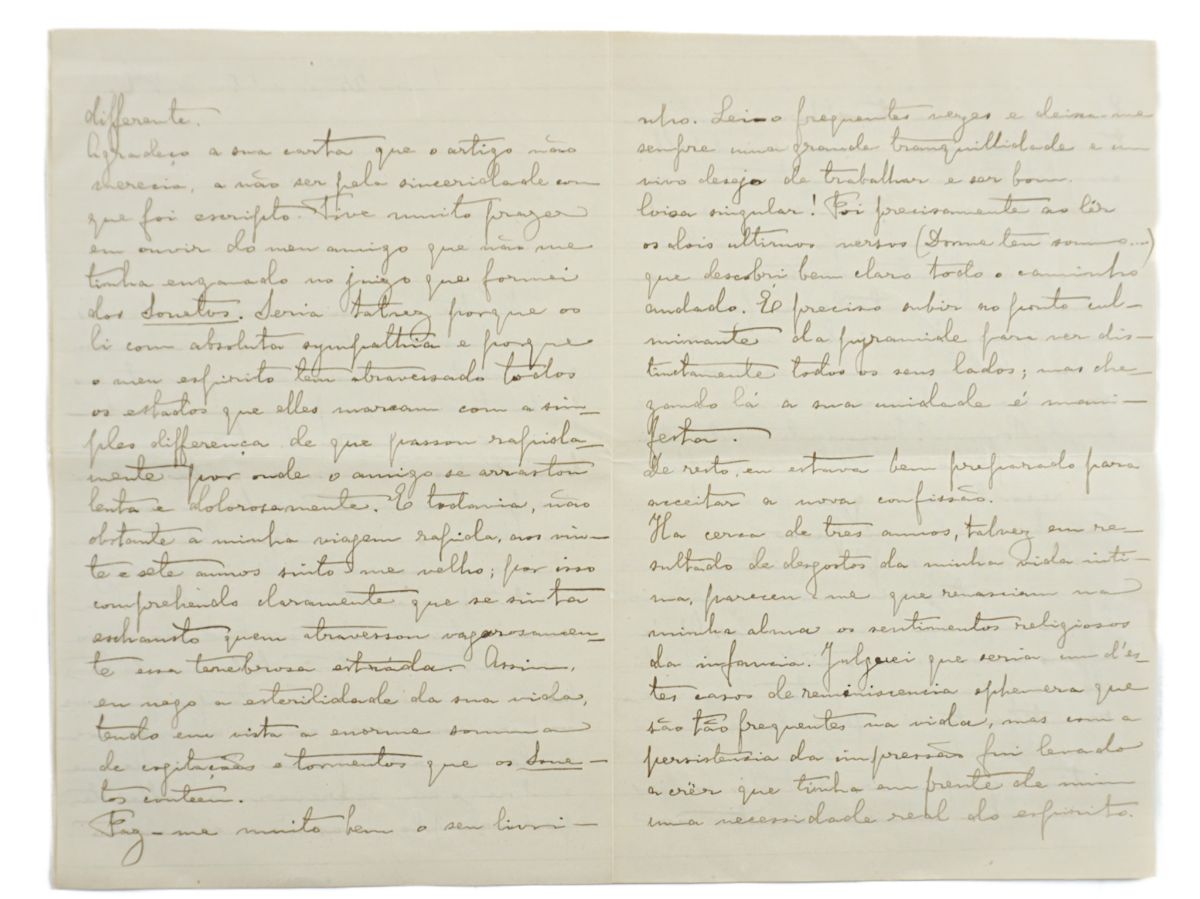 differente.
Agradeço a sua carta que o artigo não
merecia, a não ser pela sinceridade com
que foi escripto. Tive muito prazer
em ouvir do meu amigo que não me
tinha enganado no juizo que formei
dos Sonetos. Seria talvez porque os
li com absoluta sympathia e porque
o meu espirito tem atravessado todos
os estados que elles marcam com a sim-
ples differença de que passou rapida-
mente por onde o amigo se arrastou
lenta e dolorosamente. E todavia, não
obstante a minha viagem rapida, aos vin-
te e sete annos sinto-me velho; por isso
comprehendo claramente que se sinta
exhausto quem atravessou vagarosamen-
te essa tenebrosa estrada. Assim,
eu nego a esterilidade da sua vida,
tendo em vista a enorme somma
de cogitações e tormentos que os Sone-
tos conteem.
Faz-me muito bem o seu livri-
nho. Leio-o frequentes vezes e deixa-me
sempre uma grande tranquillidade e um
vivo desejo de trabalhar e ser bom.
Coisa singular! Foi precisamente ao lêr
os dois ultimos versos (Dorme teu somno....)
que descobri bem claro todo o caminho
andado. É preciso subir ao ponto cul-
minante da pyramide para ver dis-
tinctamente todos os seus lados; mas che-
gando lá a sua unidade é mani-
festa.
De resto, eu estava bem preparado para
acceitar a nova confissão.
Ha cerca de tres annos, talvez em re-
sultado de desgostos da minha vida inti-
ma, pareceu-me que renasciam na
minha alma os sentimentos religiosos
da infancia. Julguei que seria um d'es-
tes casos de reminiscencia ephemera que
são tão frequentes na vida, mas com a
persistencia da impressão fui levado
a crêr que tinha em frente de mim
uma necessidade real do espirito.